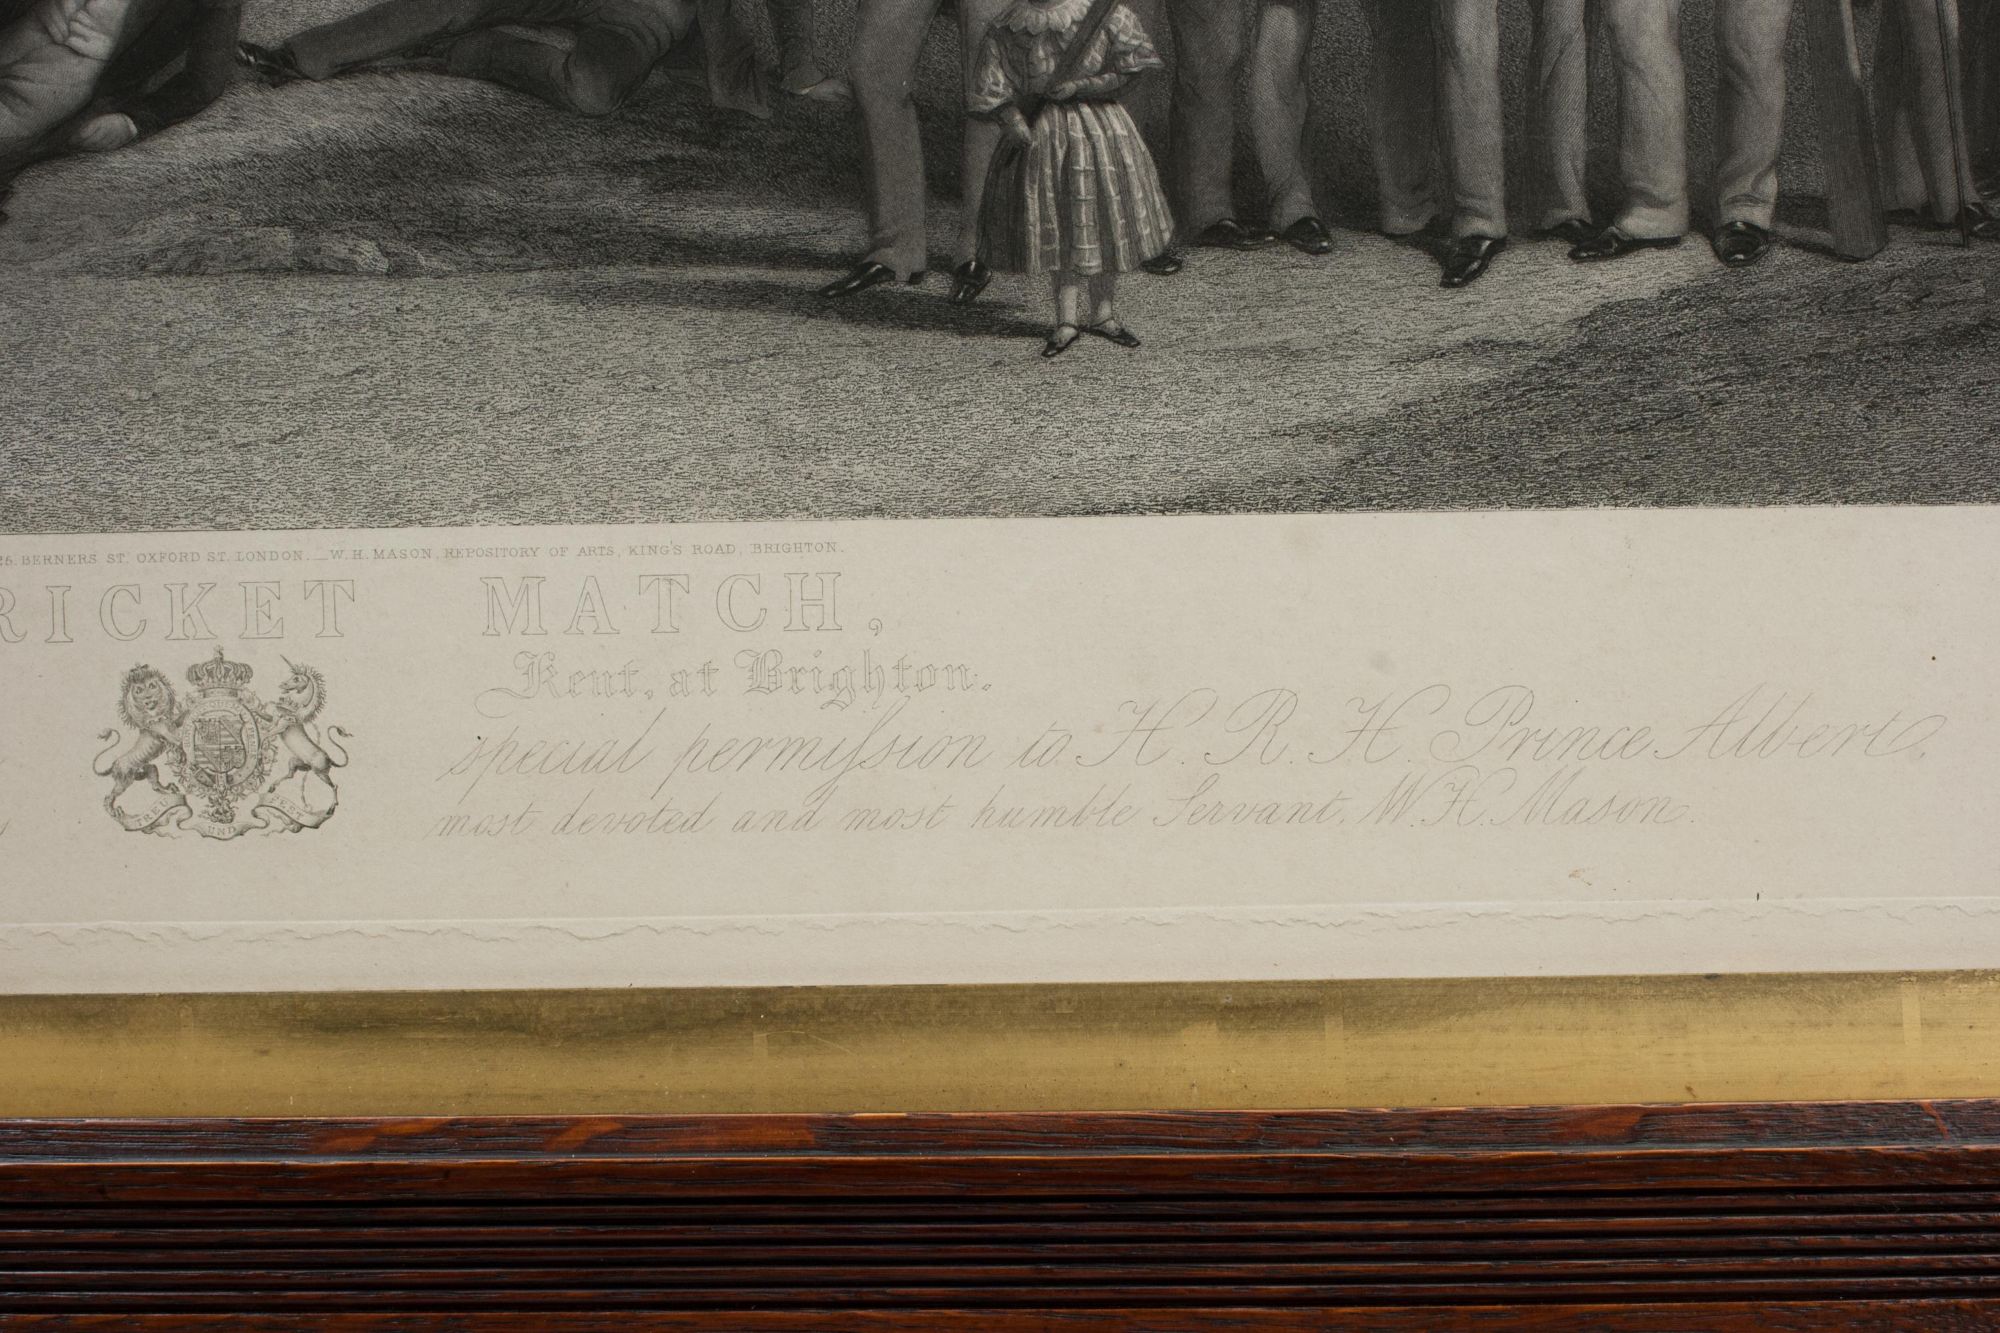 25. BERNERS ST. OXFORD ST. LONDON. _ W. H. MASON, REPOSITORY OF ARTS, KING'S ROAD, BRIGHTON.
RICKET MATCH,
Kent, at Brighton.
special permiſsion to H. R. H. Prince Albert,
most devoted and most humble Servant, W. H. Mason.
TREU UND FEST